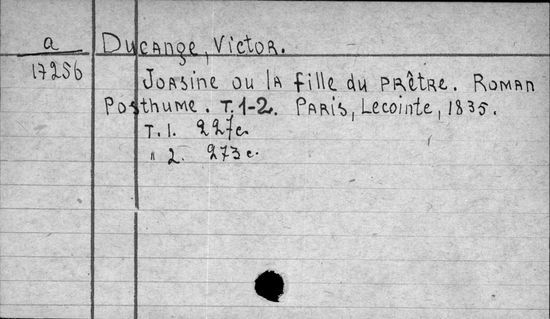 a
17256
Ducange, Victor.
Joasine ou la fille du prêtre. Roman
Posthume. T. 1-2. Paris, Lecointe, 1835.
T. 1. 227c.
" 2. 273c.